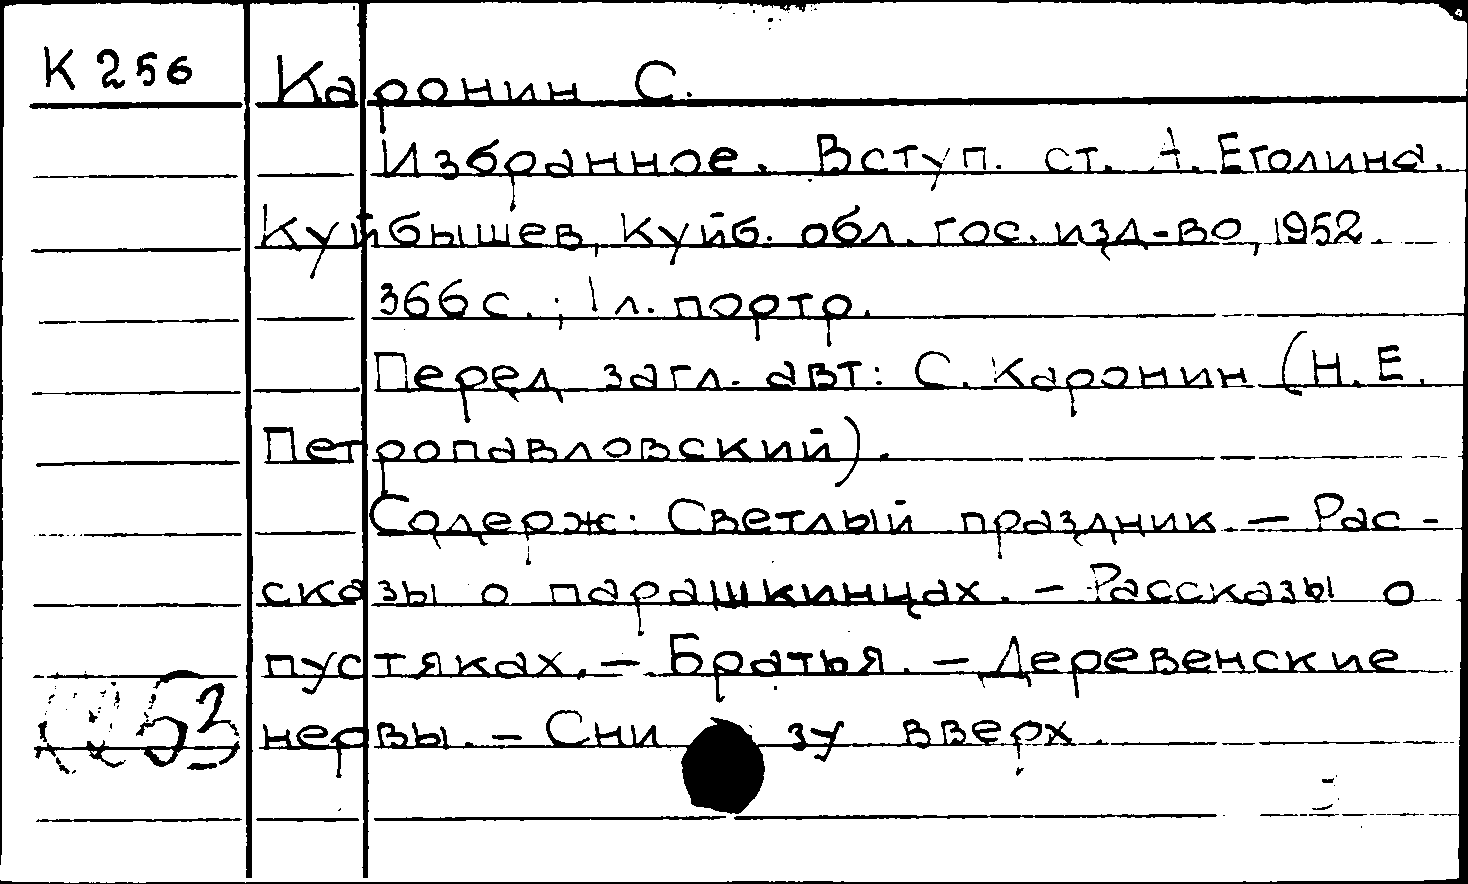 К 256 Каронин С.
Избранное. Вступ. ст. А. Еголина.
Куйбышев, Куйб. обл. гос. изд-во, 1952.
366 с.; 1 л. портр.
Перед загл. авт: С. Каронин (Н. Е.
Петропавловский).
Содерж: Светлый праздник. — Рас-
сказы о парашкинцах. — Рассказы о
пустяках. — Братья. — Деревенские
нервы. — Сни зу вверх.
53